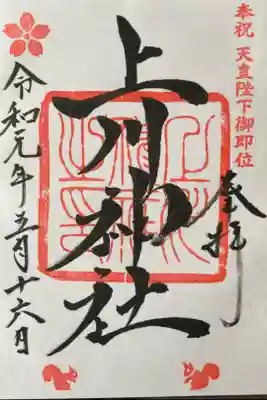 奉祝 天皇陛下御即位
奉拝
上川神社
令和元年五月十六日